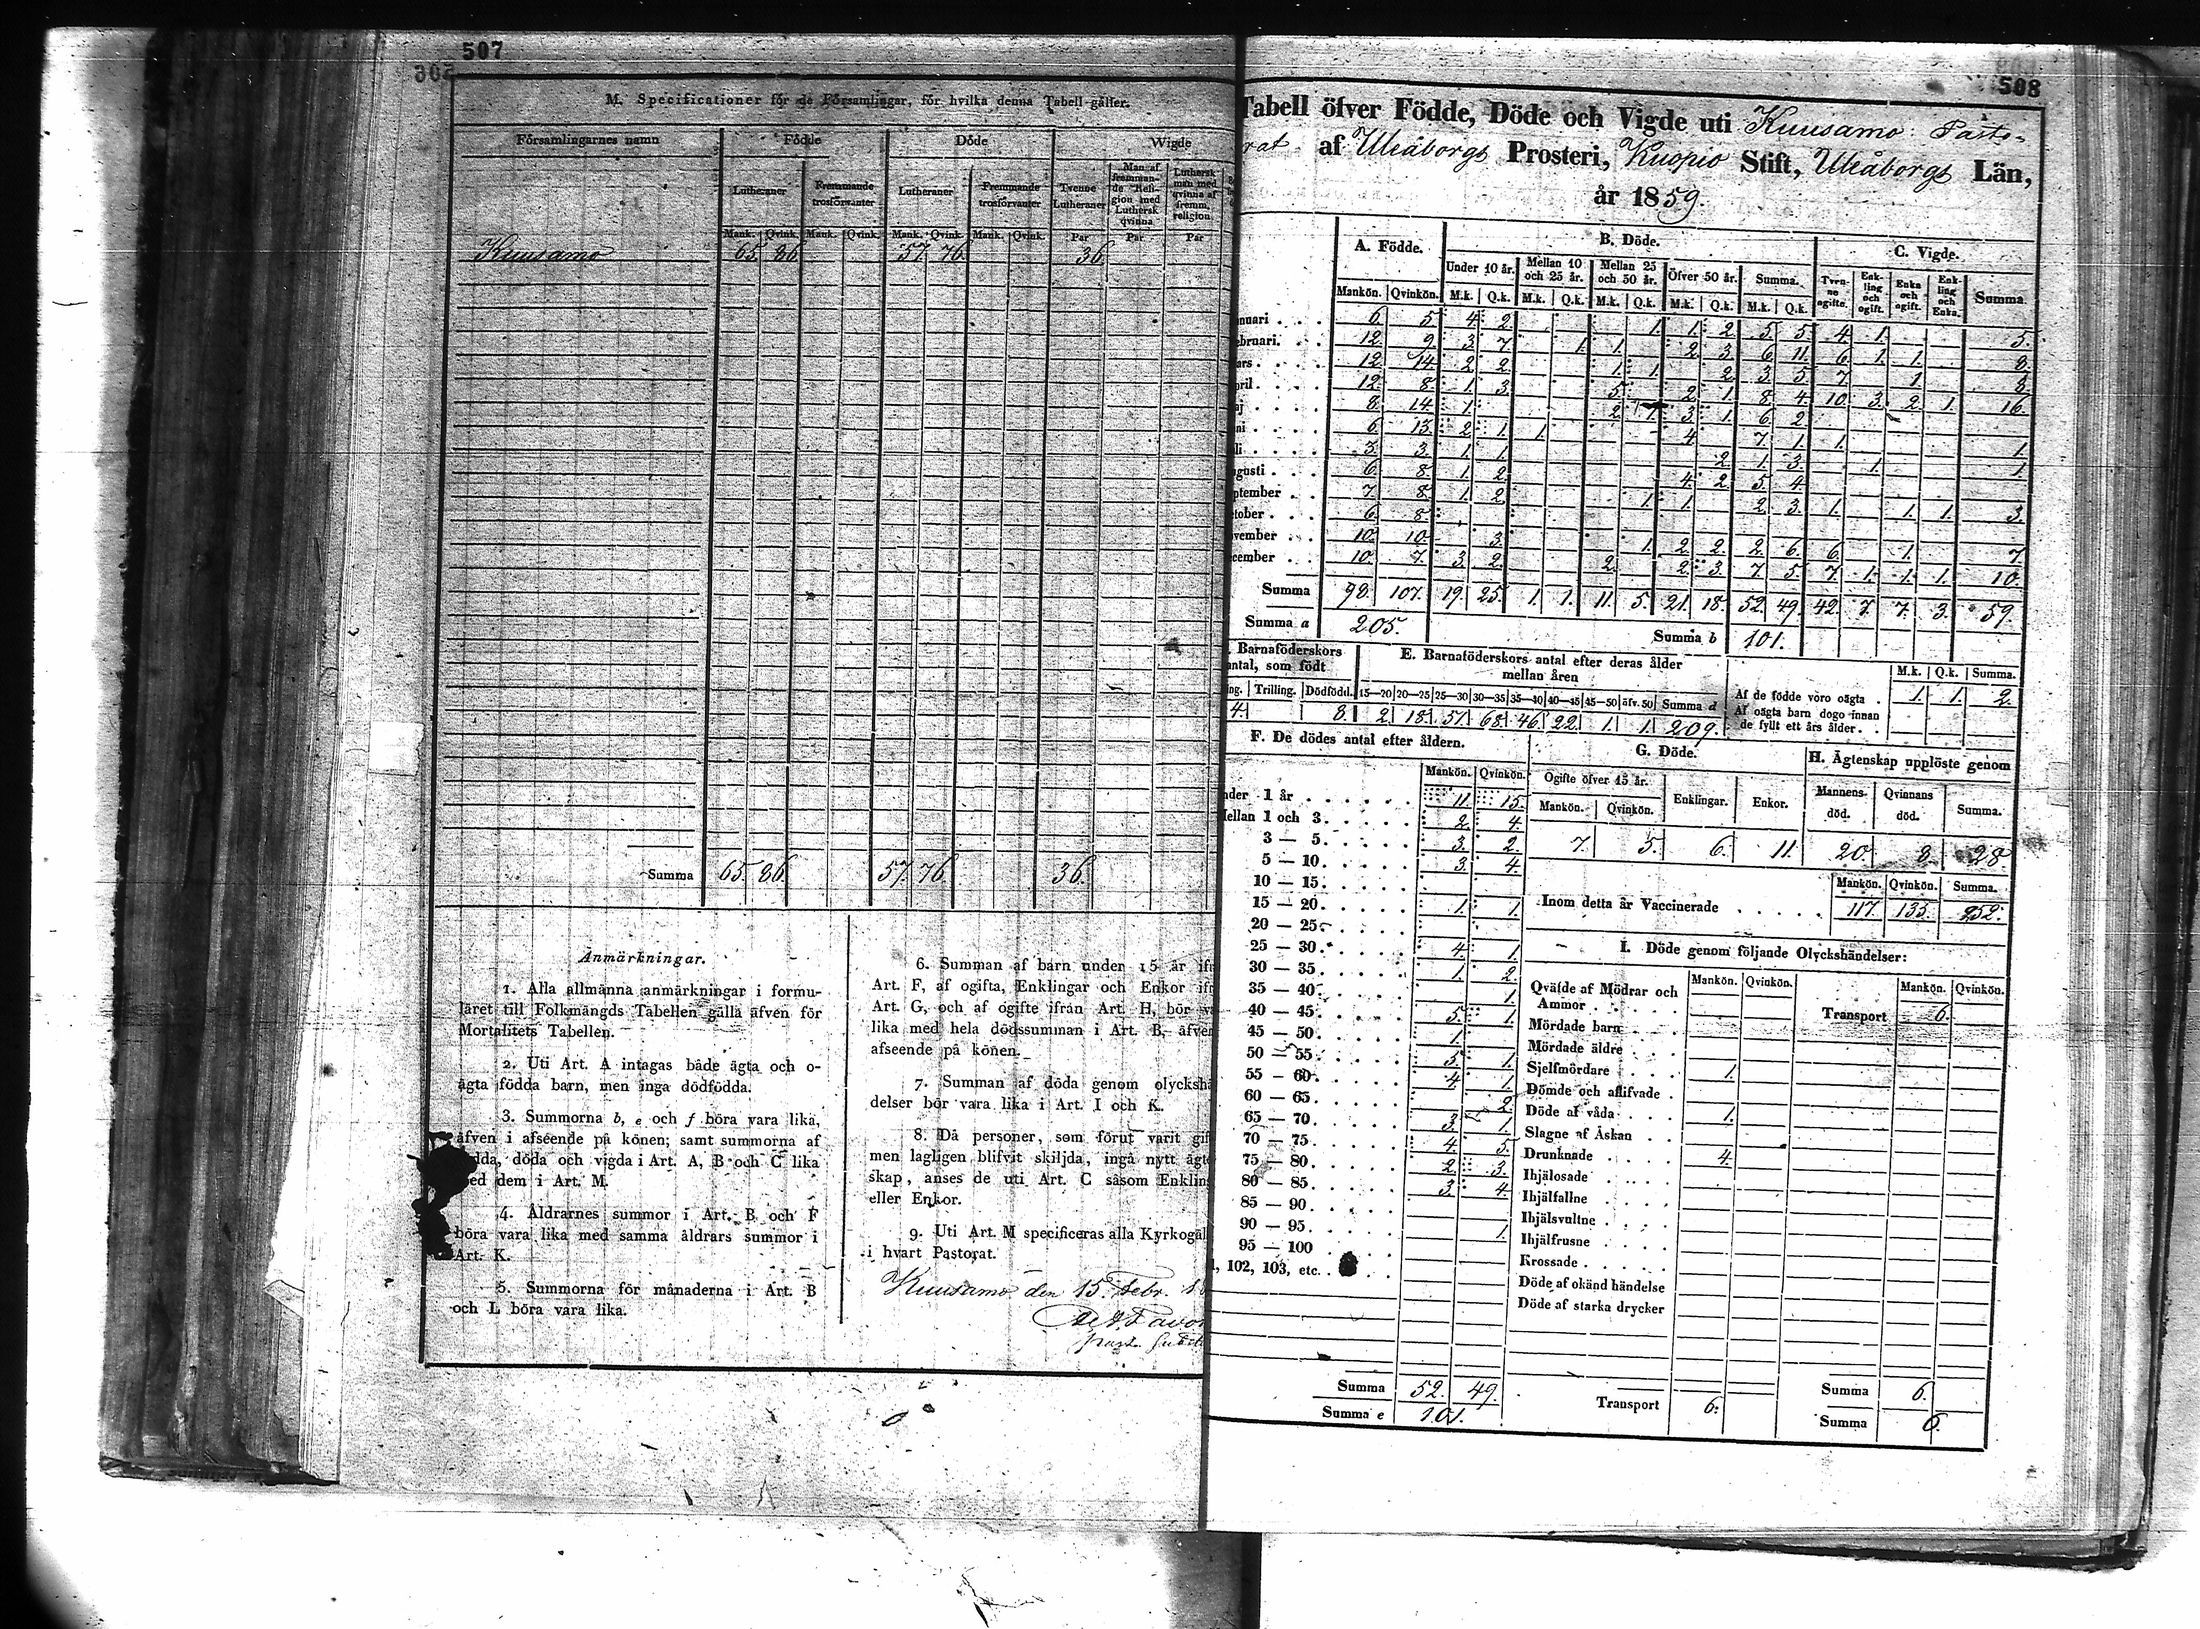 507
M. Specificationer för de Församlingar, för hvilka denna Tabell gäller.
Församlingarnes namn Födde Döde Wigde
Lutheraner Fremmande trosförvanter Lutheraner Fremmande trosförvanter Tvenne Lutheraner Man af fremmande Religion med Luthersk qvinna Luthersk man med qvinna af fremm. religion.
Mank. Qvink. Mank. Qvink. Mank. Qvink. Mank. Qvink. Par Par Par
Kuusamo 65. 86. 57. 76. 36.
Summa 65. 86. 57. 76. 36.
Anmärkningar.
1. Alla allmänna anmärkningar i formu-
läret till Folkmängds Tabellen gälla äfven för
Mortalitets Tabellen.
2. Uti Art. A intagas både ägta och o-
ägta födda barn, men inga dödfödda.
3. Summorna b, e och f böra vara lika,
äfven i afseende på könen; samt summorna af
födda, döda och vigda i Art. A, B och C lika
med dem i Art. M.
4. Åldrarnes summor i Art. B och F
böra vara lika med samma åldrars summor i
Art. K.
5. Summorna för månaderna i Art. B
och L böra vara lika.
6. Summan af barn under 15 år
Art. F, af ogifta, Enklingar och Enkor
Art. G, och af ogifte ifrån Art. H, bör
lika med hela dödssumman i Art. B, äfven
afseende på könen.
7. Summan af döda genom olycks
delser bör vara lika i Art. I och K.
8. Då personer, som förut varit
men lagligen blifvit skiljda, ingå nytt
skap, anses de uti Art. C såsom
eller Enkor.
9. Uti Art. M specificeras alla
i hvart Pastorat.
Kuusamo den 15. Febr.
508
Tabell öfver Födde, Döde och Vigde uti Kuusamo Pasto-
rat af Uleåborgs Prosteri, Kuopio Stift, Uleåborgs Län,
år 1859.
A. Födde. B. Döde. C. Vigde.
Under 10 år. Mellan 10 och 25 år. Mellan 25 och 50 år. Öfver 50 år. Summa. Tvenne ogifta. Enkling och ogift. Enka och ogift. Enkling och Enka. Summa.
Mankön. Qvinkön. M.k. Q.k. M.k. Q.k. M.k. Q.k. M.k. Q.k. M.k. Q.k.
nuari 6. 5. 4. 2. 1. 1. 2. 5. 5. 4. 1. 5.
ebruari. 12. 9. 3. 7. 1. 1. 2. 3. 6. 11. 6. 1. 1. 8.
ars 12. 14. 2. 2. 1. 1. 2. 3. 5. 7. 1. 8.
pril 12. 8. 1. 3. 5. 2. 1. 8. 4. 10. 3. 2. 1. 16.
aj 8. 14. 1. 2. 1. 3. 1. 6. 2.
ni 6. 13. 2. 1. 1. 4. 7. 1. 1. 1.
li 3. 3. 1. 1. 2. 1. 3. 1. 1.
gusti 6. 8. 1. 2. 4. 2. 5. 4.
ptember 7. 8. 1. 2. 1. 1. 2. 3. 1. 1. 1. 3.
tober 6. 8.
vember 10. 10. 3. 1. 2. 2. 2. 6. 6. 1. 7.
cember 10. 7. 3. 2. 2. 2. 3. 7. 5. 7. 1. 1. 1. 10.
Summa 98. 107. 19. 25. 1. 1. 11. 5. 21. 18. 52. 49. 42. 7. 7. 3. 59.
Summa a 205. Summa b 101.
Barnaföderskors
antal, som födt
Trilling. Dödfödd.
4. 8.
E. Barnaföderskors antal efter deras ålder
mellan åren
15—20 20—25 25—30 30—35 35—40 40—45 45—50 öfv. 50 Summa d
2. 18. 51. 68. 46. 22. 1. 1. 209.
M.k. Q.k. Summa.
Af de födde voro oägta . 1. 1. 2.
Af oägta barn dogo innan
de fyllt ett års ålder.
F. De dödes antal efter åldern.
Mankön. Qvinkön.
nder 1 år 11. 15.
Mellan 1 och 3. 2. 4.
3 — 5. 3. 2.
5 — 10. 3. 4.
10 — 15.
15 — 20. 1. 1.
20 — 25
25 — 30. 4. 1.
30 — 35. 1. 2.
35 — 40. 1.
40 — 45. 5. 1.
45 — 50. 1.
50 — 55. 5. 1.
55 — 60. 4. 1.
60 — 65. 2.
65 — 70. 3. 1.
70 — 75. 4. 5.
75 — 80. 2. 3.
80 — 85. 3. 4.
85 — 90.
90 — 95. 1.
95 — 100
102, 103, etc.
Summa 52. 49.
Summa e 101.
G. Döde.
Ogifte öfver 15 år. Enklingar. Enkor.
Mankön. Qvinkön.
7. 5. 6. 11.
H. Ägtenskap upplöste genom
Mannens död. Qvinnans död. Summa.
20. 8. 28
Mankön. Qvinkön. Summa.
Inom detta år Vaccinerade 117. 135. 252.
I. Döde genom följande Olyckshändelser:
Mankön. Qvinkön. Mankön. Qvinkön.
Qväfde af Mödrar och
Ammor
Transport 6.
Mördade barn
Mördade äldre
Sjelfmördare 1.
Dömde och aflifvade
Döde af våda 1.
Slagne af Åskan
Drunknade 4.
Ihjälosade
Ihjälfallne
Ihjälsvultne
Ihjälfrusne
Krossade
Döde af okänd händelse
Döde af starka drycker
Transport 6.
Summa 6.
Summa 6.